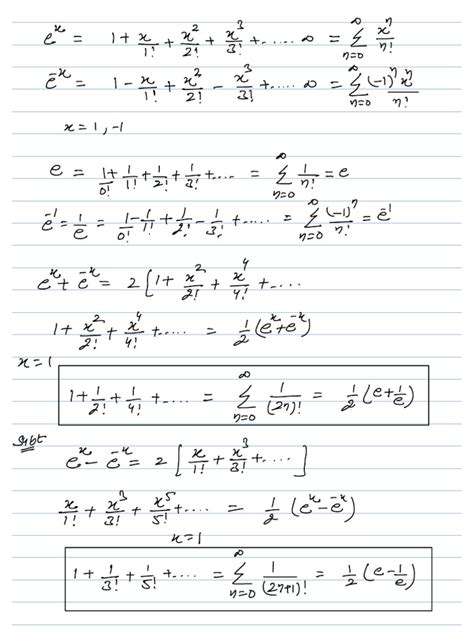 e^x = 1 + x/1! + x²/2! + x³/3! + ..... ∞ = ∑_{n=0}^{∞} x^n/n!
e^{-x} = 1 - x/1! + x²/2! - x³/3! + ..... ∞ = ∑_{n=0}^{∞} (-1)^n x^n/n!
x = 1, -1
e = 1/0! + 1/1! + 1/2! + 1/3! + .... = ∑_{n=0}^{∞} 1/n! = e
e^{-1} = 1/e = 1/0! - 1/1! + 1/2! - 1/3! + .... = ∑_{n=0}^{∞} (-1)^n/n! = e^{-1}
e^x + e^{-x} = 2 [ 1 + x²/2! + x⁴/4! + ....
1 + x²/2! + x⁴/4! + ..... = 1/2 (e^x + e^{-x})
x = 1
1 + 1/2! + 1/4! + ..... = ∑_{n=0}^{∞} 1/(2n)! = 1/2 (e + 1/e)
Subt
e^x - e^{-x} = 2 [ x/1! + x³/3! + .... ]
x/1! + x³/3! + x⁵/5! + .... = 1/2 (e^x - e^{-x})
x = 1
1 + 1/3! + 1/5! + .... = ∑_{n=0}^{∞} 1/(2n+1)! = 1/2 (e - 1/e)